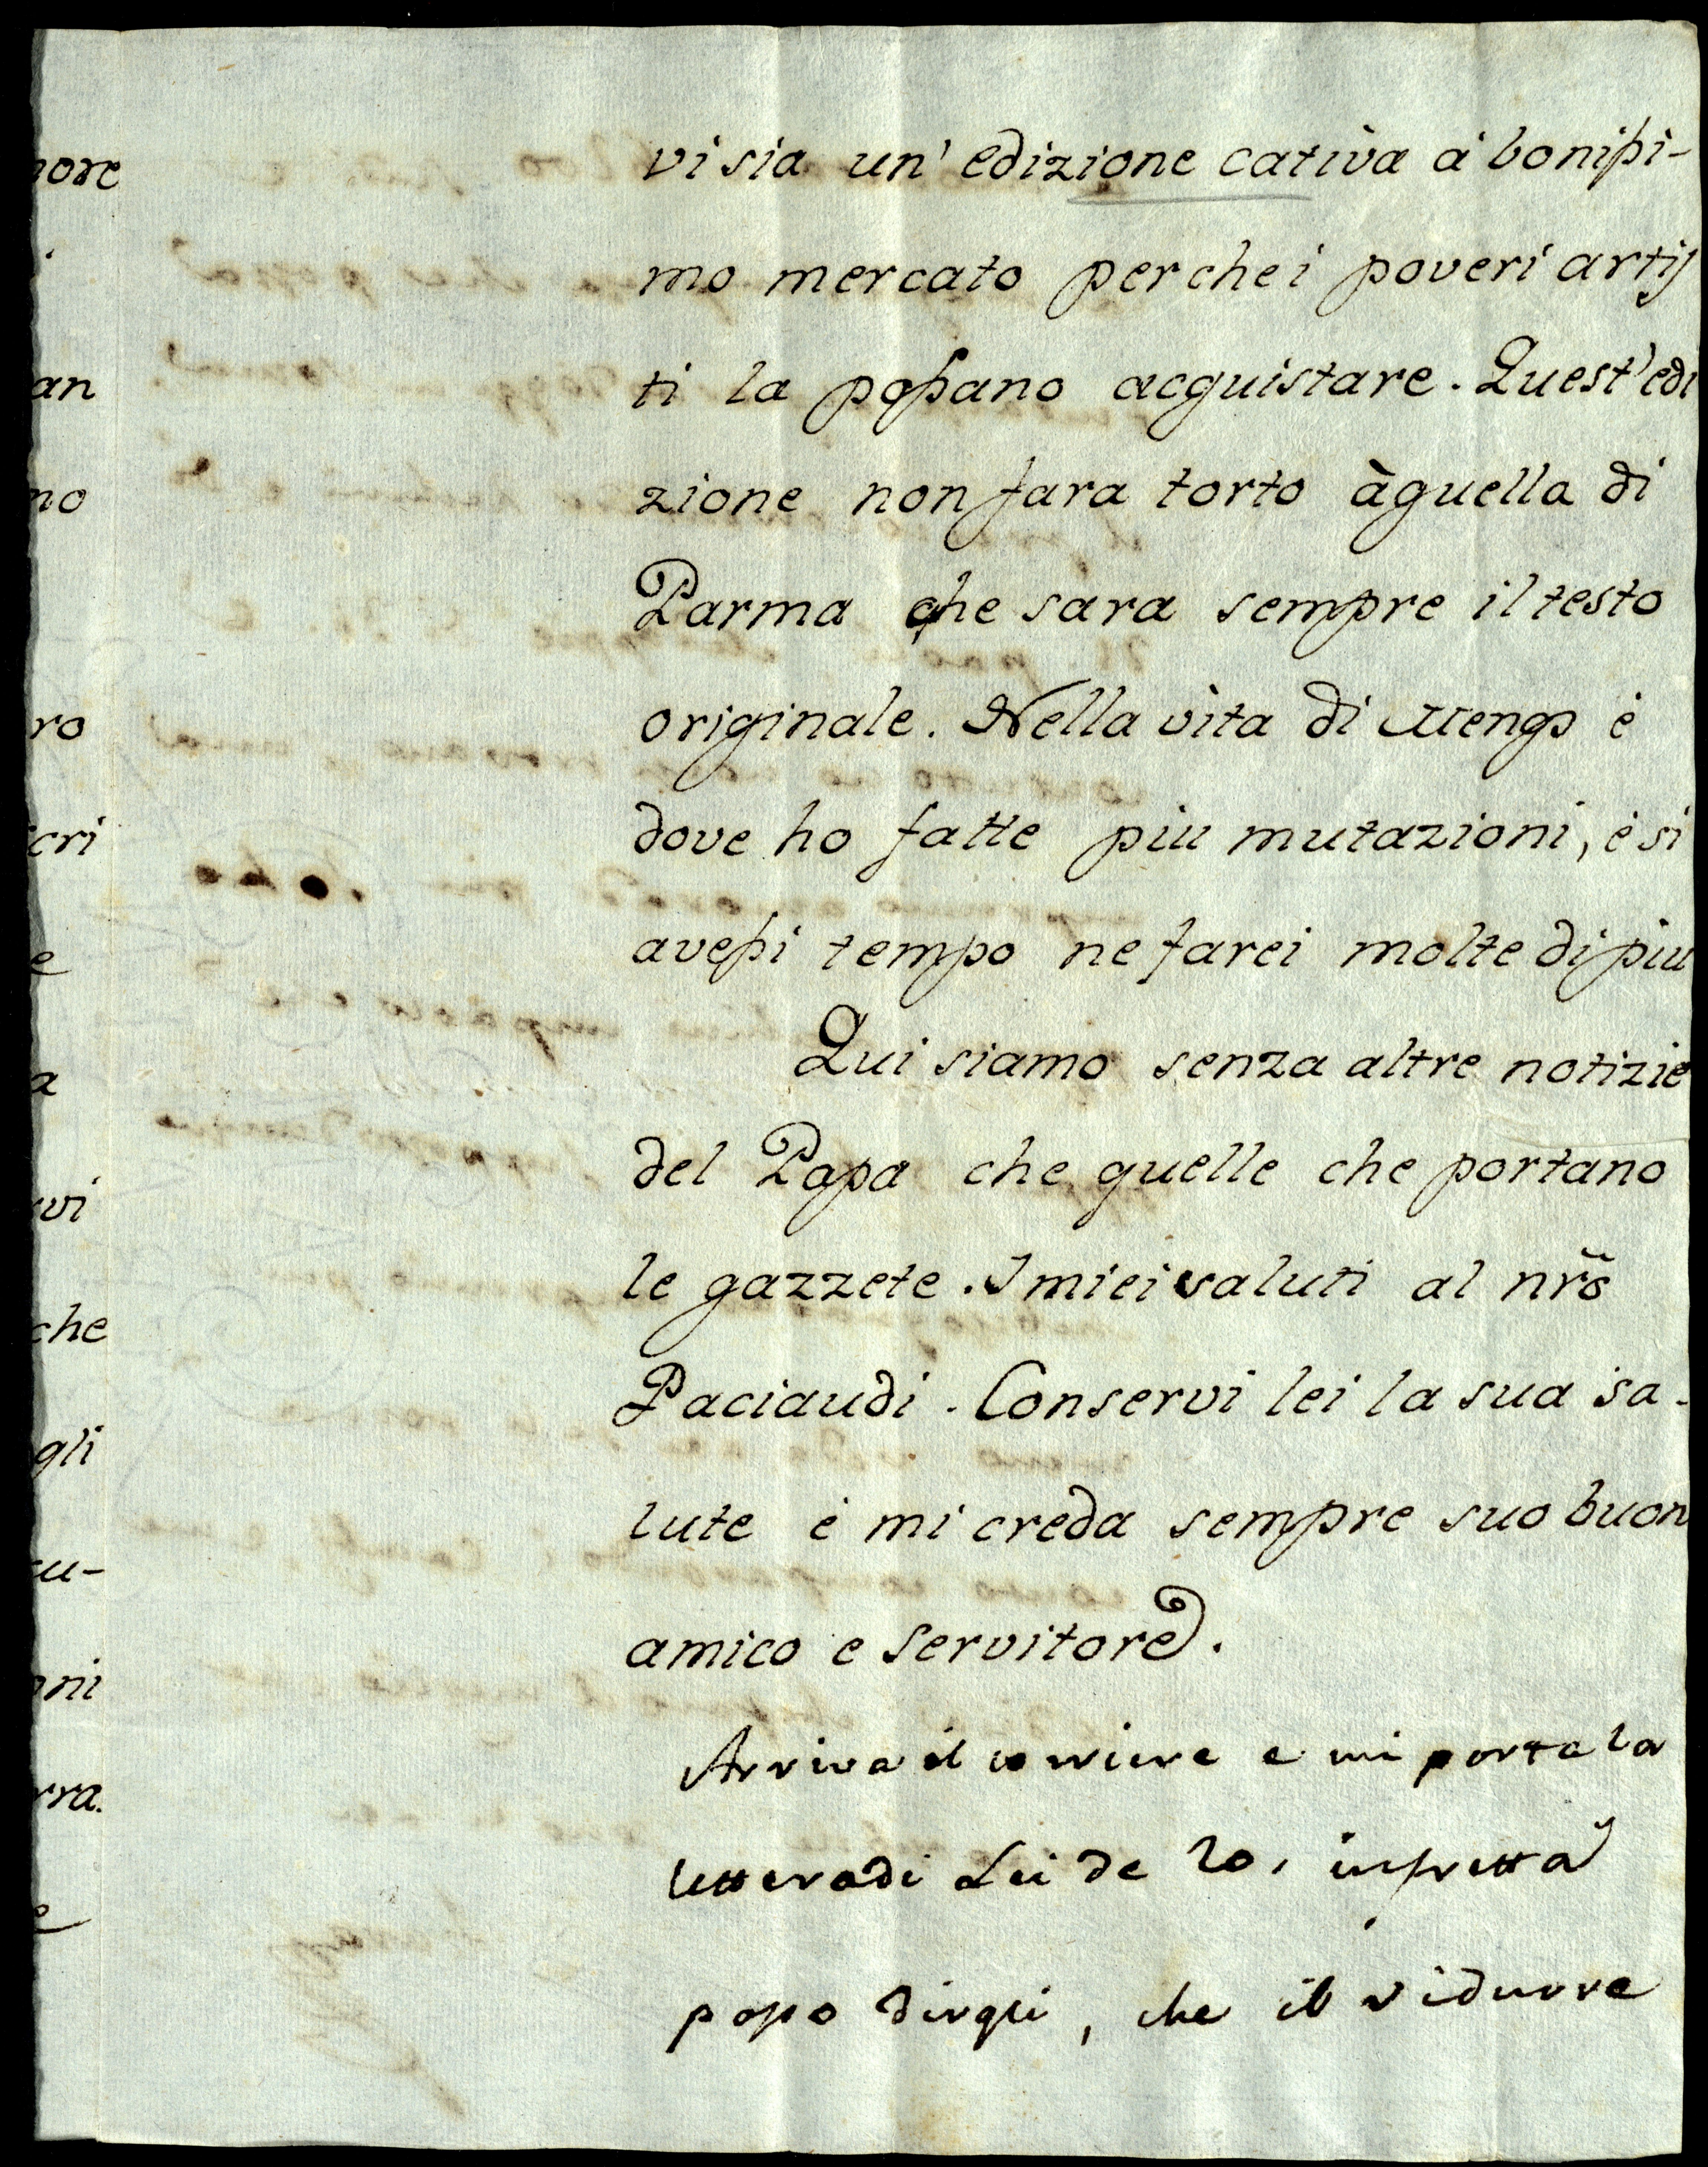 vi sia un' edizione cativa à bonissi-
mo mercato perche i poveri artis
ti la possano acquistare. Quest' edi
zione non fara torto à quella di
Parma che sara sempre il testo
originale. Nella vita di Mengs è
dove ho fatte piu mutazioni, è si
avessi tempo ne farei molte di piu
Qui siamo senza altre notizie
del Papa che quelle che portano
le gazzete. I miei saluti al nr̃o
Paciaudi. Conservi lei la sua sa-
lute è mi creda sempre suo buon
amico e servitore.
Arriva il corriere e mi porta la
lettera di Lei de 20, in fretta
posso dirgli, che il ridurre
nore
an
no
ro
cri
e
a
vi
che
gli
cu-
nni
rra.